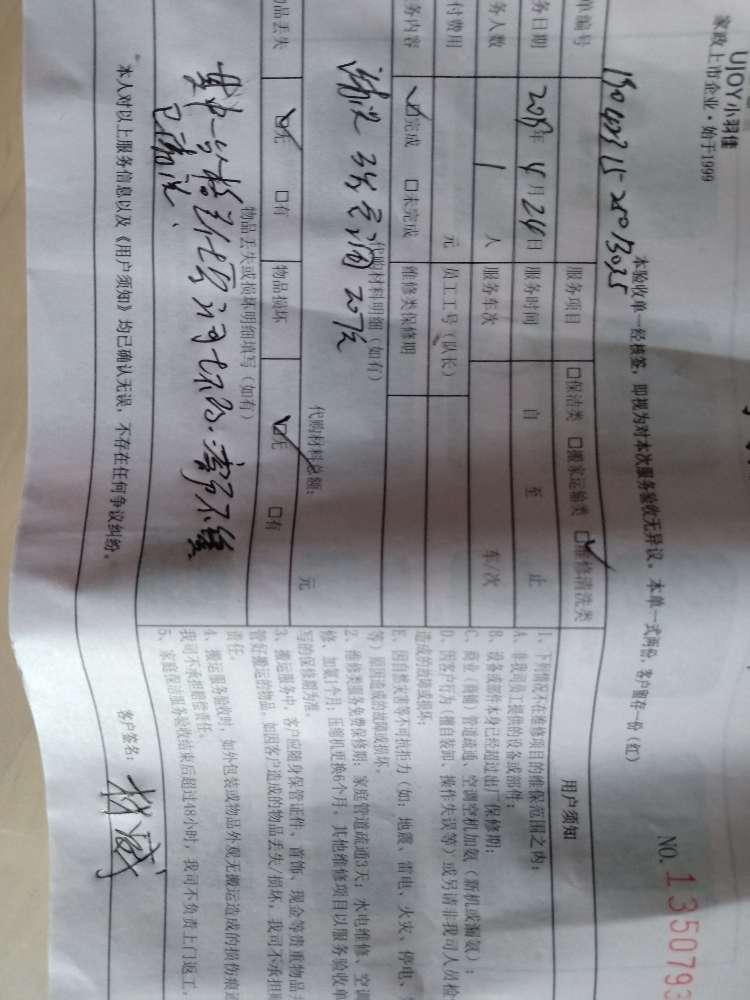 UJOY小羽佳
家政上市企业·始于1999
NO. 135079
本验收单一经核签，即视为对本次服务验收无异议。本单一式两份，客户留存一份（红）
单编号
服务项目 □保洁类 □搬家运输类 ☑维修清洗类
务日期 年 4月24日 服务时间 自 至 止
务人数 1 人 服务车次 车/次
付费用 元 员工工号（队长）
务内容 ☑完成 □未完成 维修类保修期
代购材料明细（如有）
清洗 空调
代购材料总额： 元
品丢失 ☑无 □有 物品损坏 ☑无 □有
物品丢失或损坏明细填写（如有）
其中一台
已清洗
本人对以上服务信息以及《用户须知》均已确认无误，不存在任何争议纠纷。
客户签名：
用户须知
1、下列情况不在维修项目的维保范围之内：
A、非我司员工提供的设备或部件；
B、设备或部件本身已经超过出厂保修期；
C、商业（商铺）管道疏通、空调空机加氨（新机或漏氨）；
D、因客户行为（擅自装卸、操作失误等）或另请非我司人员检
造成的故障或损坏；
E、因自然灾害等不可抗拒力（如：地震、雷电、火灾、停电、
等）原因造成的故障或损坏。
2、维修类服务免费保修期：家庭管道疏通3天；水电维修、空调
修、加氨1个月；压缩机更换6个月，其他维修项目以服务验收单
写的保修期为准。
3、搬运服务中，客户应随身保管证件、首饰、现金等贵重物品并
管好搬运的物品，如因客户造成的物品丢失/损坏，我司不承担赔
责任。
4、搬运服务验收时，如外包装或物品外观无搬运造成的损伤痕迹
我司不承担赔偿责任。
5、家庭保洁服务验收结束后超过48小时，我司不负责上门返工。